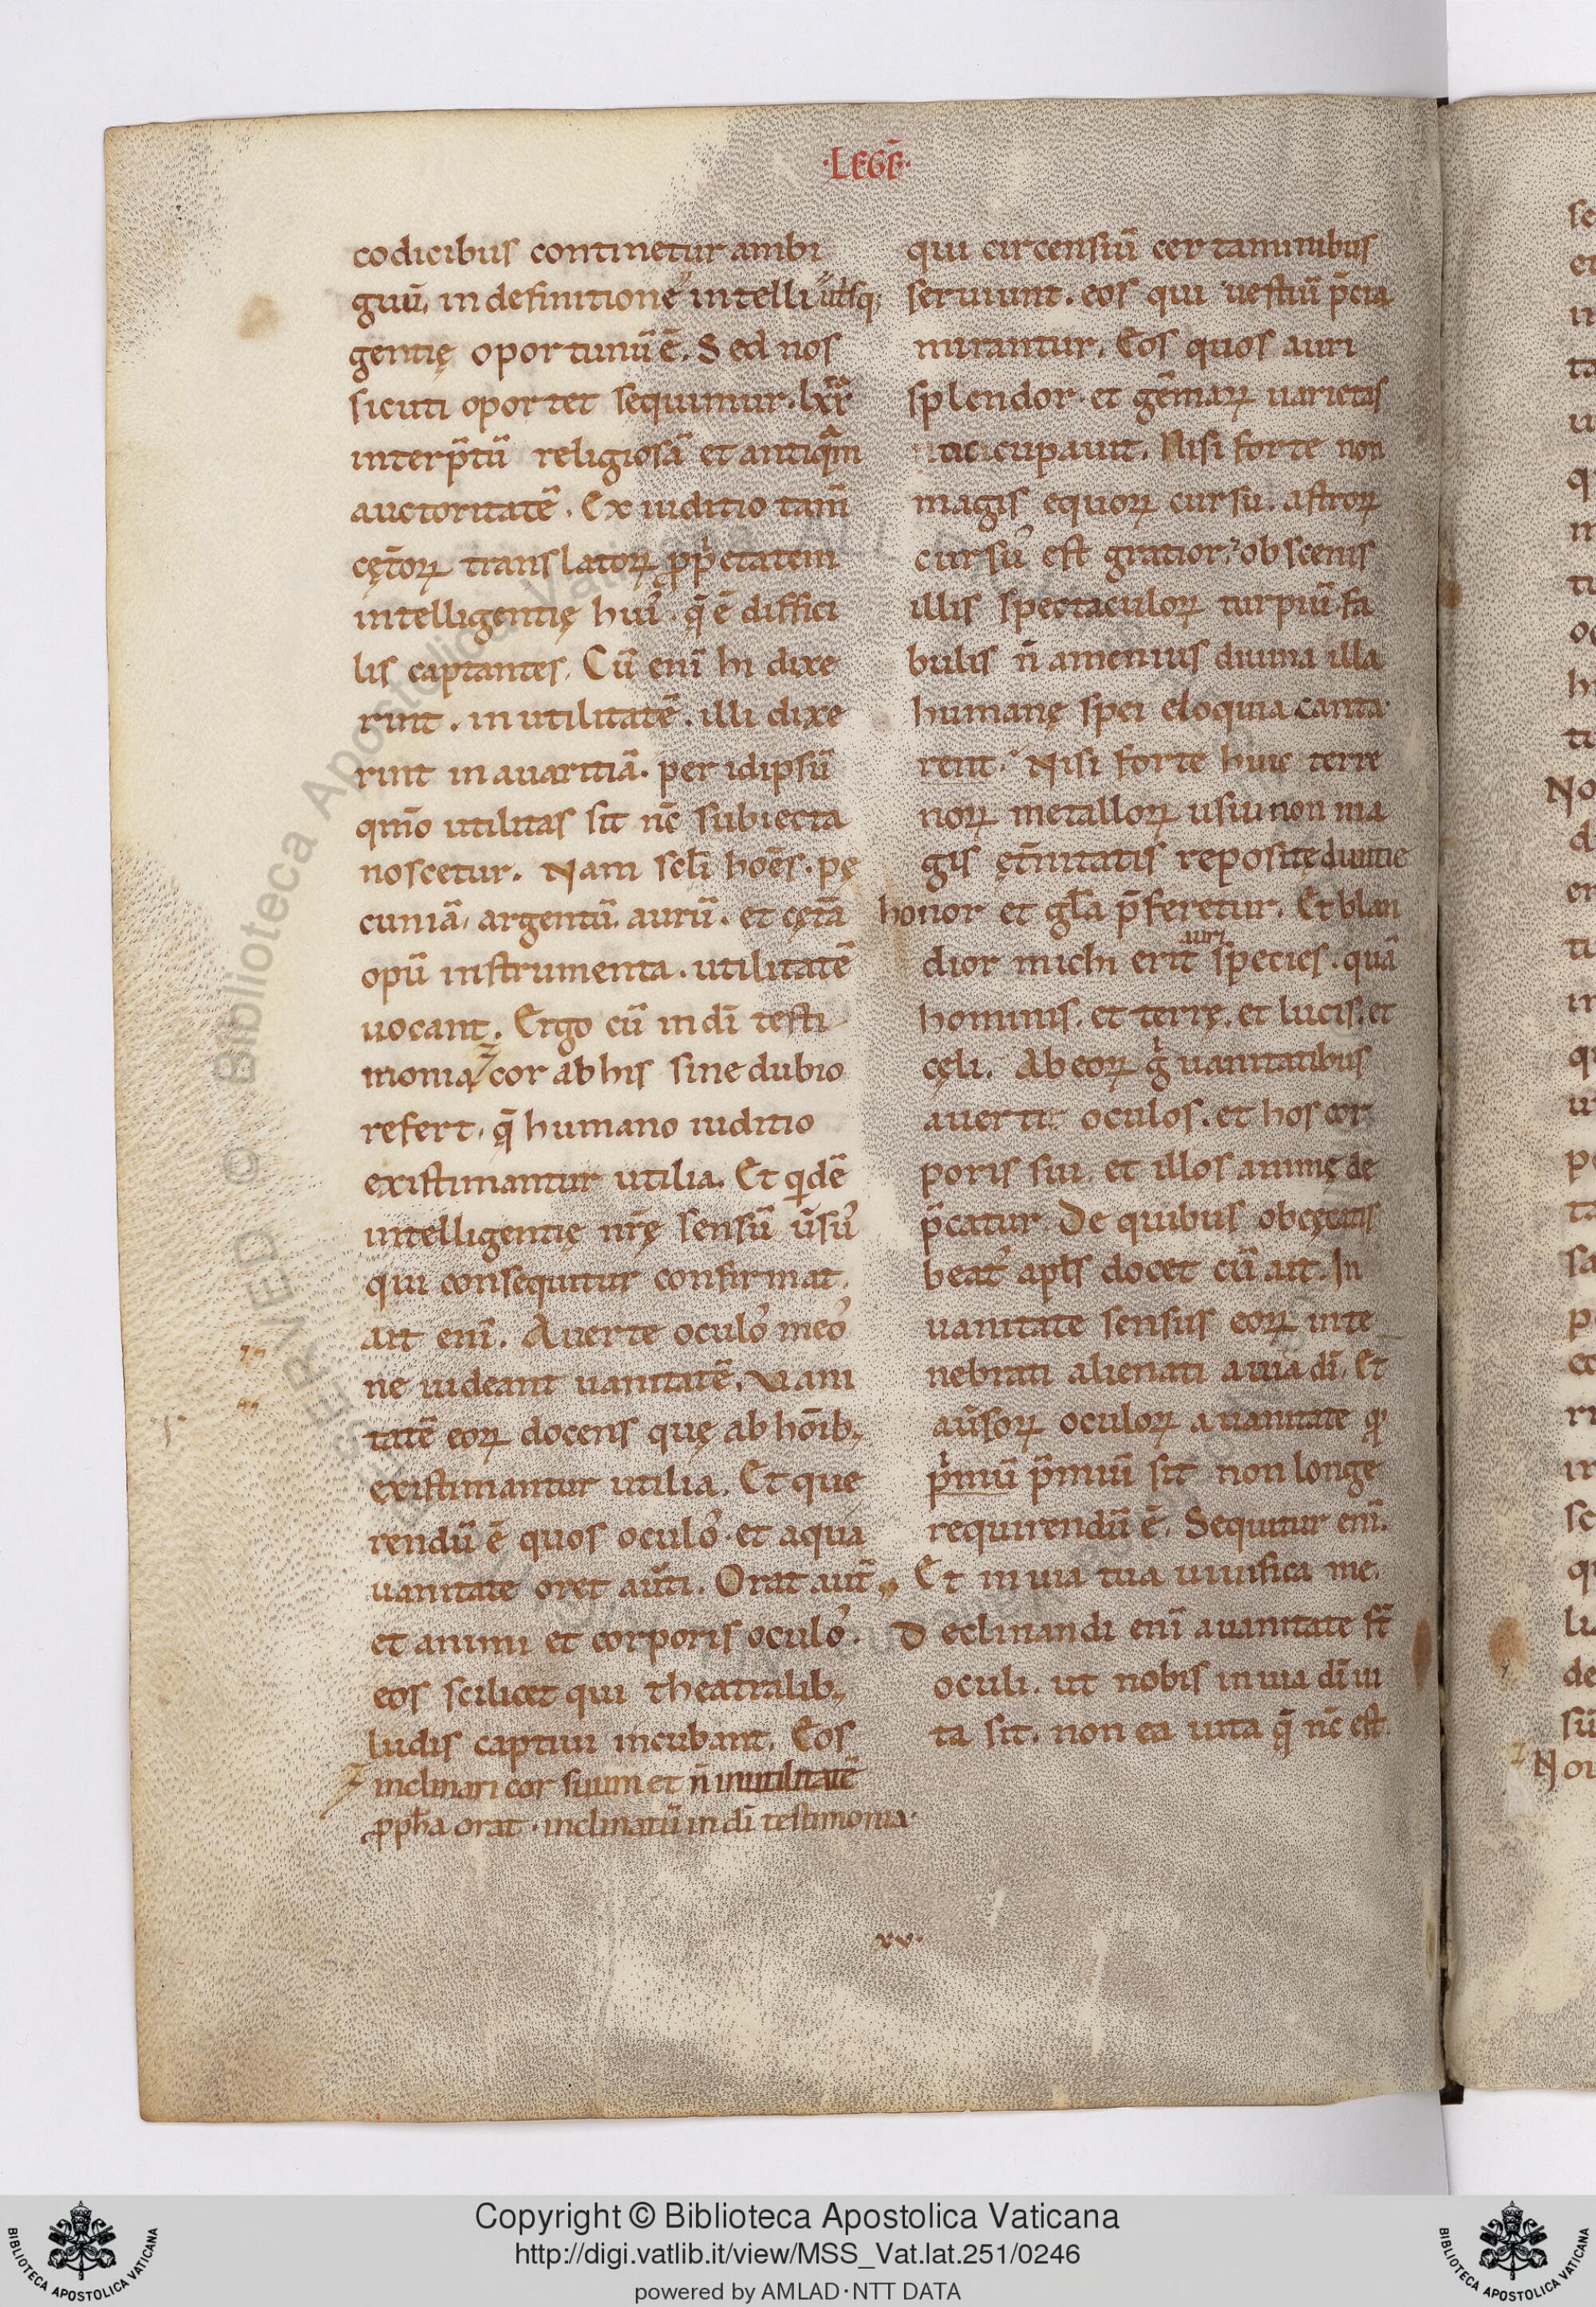 ·LEGE̅·
codicibus continetur ambi
guu̅. in definitione intelli utr̅sq;
gentię oportunu̅ e̅. Sed nos
sicuti oportet sequimur. lxx
interp̅tu̅ religiosa̅ et antiq̅m
auctoritate̅. Ex iuditio tam̅
cęt̅oꝝ translatoꝝ ꝓp̅etatem
intelligentię hui᾽ q̅ e̅ diffici
lis captantes. Cu̅ eni̅ hi dixe
rint. in utilitate̅. illi dixe
rint in auaritia̅. per idipsu̅
qm̅o utilitas sit nc̅ subiecta
noscetur. Nam scl̅i ho̅es. pę
cunia̅. argentu̅. auru̅. et cęt̅a
opu̅ instrumenta. utilitate̅
uocant. Ergo cu̅ in di̅ testi
monia cor ab his sine dubio
refert. q̅ humano iuditio
existimantur utilia. Et qide̅
intelligentię nr̅ę sensu̅ u̅su᾽
qui consequitur confirmat.
ait eni̅. Auerte oculo᾽ meo᾽
ne uideant uanitate̅. Uani
tate̅ eoꝝ docens quę ab ho̅ib;
existimantur utilia. Et que
rendu̅ e̅ quos oculo᾽ et a qua
uanitate oret au̅ti. Orat aut̅
et animi et corporis oculo᾽.
eos scilicet qui theatralib;
ludis captiui incubant. Eos
inclinari cor suum et n̅ in utilitate̅
ꝓph̅a orat. inclinatu̅ in di̅ testimonia.
qui circensiu̅ certaminibus
seruiunt. eos qui uestiu̅ p̅cia
mirantur. Eos quos auri
splendor et ge̅maꝝ uarietas
occupauit. Nisi forte non
magis equoꝝ cursu. astroꝝ
cursu᾽ est gratior. obscenis
illis spectaculoꝝ turpiu̅ fa
bulis n̅ amenius diuina illa
humanę spei eloquia canta
rent. Nisi forte huic terre
noꝝ metalloꝝ usui non ma
gis ęt̅nitatis repositę diuitie
honor et gl̅a p̅feretur. Et blan
dior michi erit auri species. qua̅
hominis. et terrę. et lucis. et
cęli. Ab eoꝝ g̅ uanitatibus
auerti oculos. et hos cor
poris sui. et illos animę de
p̅catur. De quibus obcęcatis
beat᾽ apl̅s docet cu̅ ait. In
uanitate sensus eoꝝ in te
nebrati alienati a uia di̅. Et
au̅soꝝ oculoꝝ a uanitate qͦ
p̅miu̅ p̅miu̅ sit non longe
requirendu̅ e̅. Sequitur eni̅.
Et in uia tua uiuifica me.
Declinandi eni̅ a uanitate st̅
oculi. ut nobis in uia di̅ ui
ta sit. non ea uita q̅ nc̅ est.
xv.
Copyright © Biblioteca Apostolica Vaticana
http://digi.vatlib.it/view/MSS_Vat.lat.251/0246
powered by AMLAD·NTT DATA
BIBLIOTECA APOSTOLICA VATICANA
BIBLIOTECA APOSTOLICA VATICANA